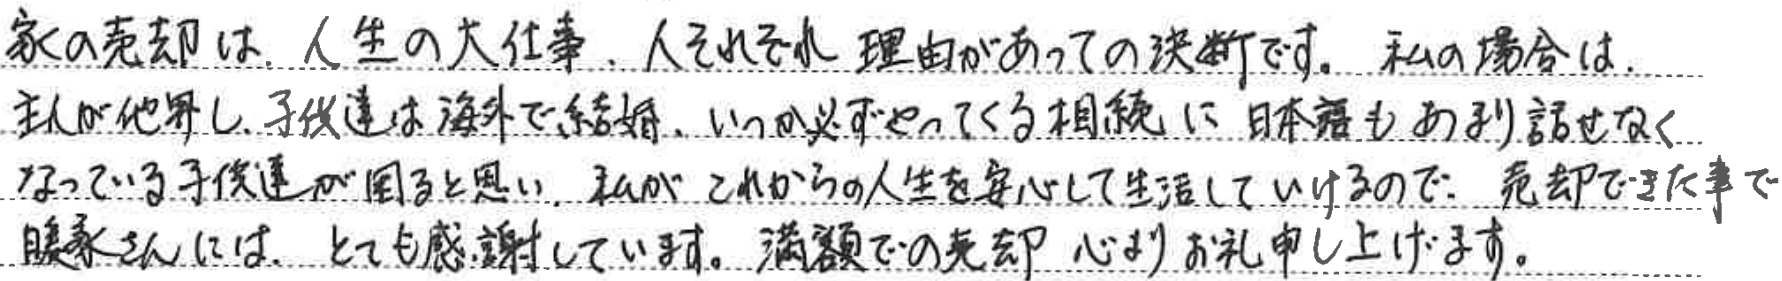 家の売却は、人生の大仕事、人それぞれ 理由があっての決断です。 私の場合は、
主人が他界し、子供達は海外で結婚、いつか必ずやってくる相続に 日本語もあまり話せなく
なっている子供達が困ると思い、私がこれからの人生を安心して生活していけるので、売却できた事で
暖家さんには、とても感謝しています。満額での売却 心よりお礼申し上げます。